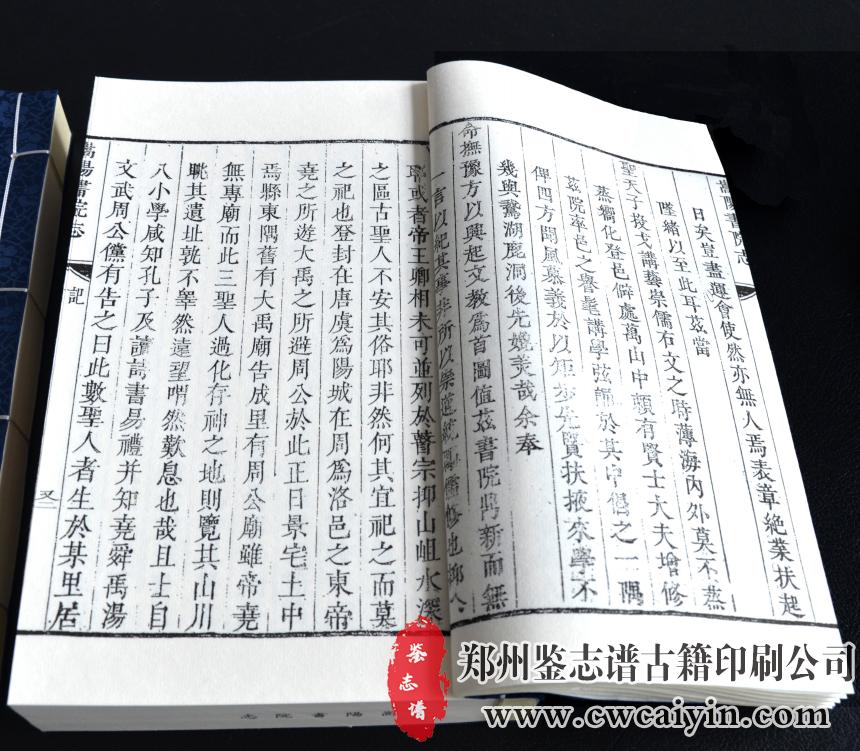 嵩陽書院志
日矣豈盡運會使然亦無人焉表章絶業扶起
墜緒以至此耳茲當
聖天子投戈講藝崇儒右文之時薄海内外莫不蒸
蒸嚮化登邑僻處萬山中頗有賢士大夫增修
茲院率邑之譽髦講學弦誦於其中倡之一隅
俾四方聞風慕義於以矩步先賢扶掖來學不
幾與鵞湖鹿洞後先媲美哉余奉
命撫豫方以興起文教爲首圖值茲書院鼎新而無
一言以紀其事非所以崇道統闡儒修也抑人
耶或者帝王卿相未可並列於瞽宗抑山岨水深
之區古聖人不安其俗耶非然何其宜祀之而莫
之祀也登封在唐虞爲陽城在周爲洛邑之東帝
堯之所遊大禹之所避周公於此正日景宅土中
焉縣東隅舊有大禹廟告成里有周公廟雖帝堯
無專廟而此三聖人過化存神之地則覽其山川
眺其遺址孰不睪然遠望喟然歎息也哉且士自
八小學咸知孔子及讀詩書易禮并知堯舜禹湯
文武周公儻有告之曰此數聖人者生於某里居
嵩陽書院志
記
又二
嵩陽書院志
鉴志谱
郑州鉴志谱古籍印刷公司
www.cwcaiyin.com